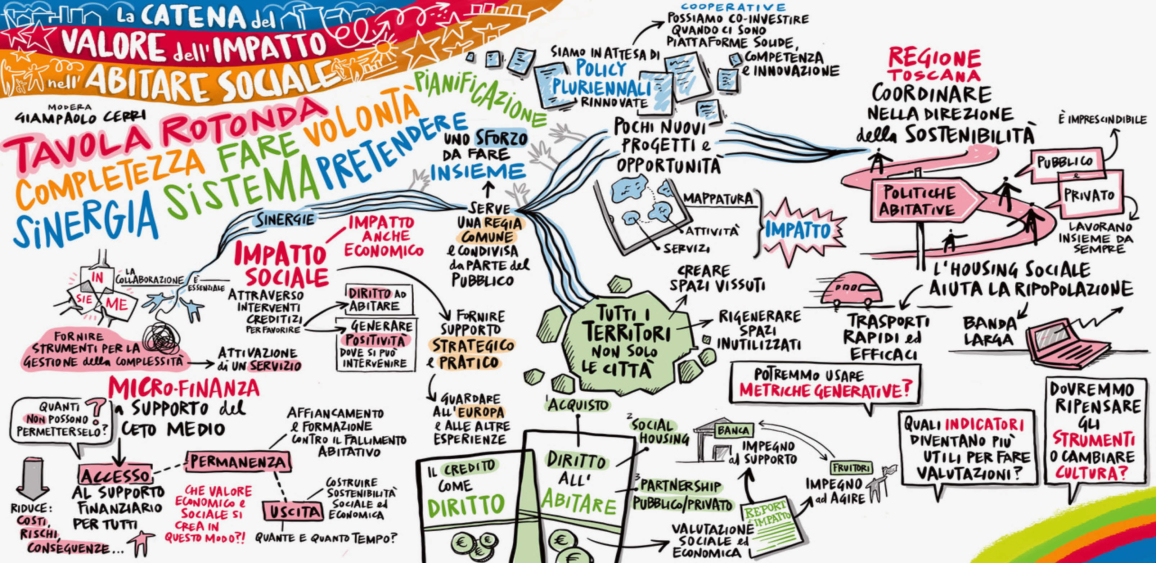 La CATENA del
VALORE dell'IMPATTO
nell'ABITARE SOCIALE
MODERA
GIAMPAOLO CERRI
TAVOLA ROTONDA
COMPLETEZZA FARE VOLONTÀ
SINERGIA SISTEMA PRETENDERE
PIANIFICAZIONE
SINERGIE
UNO SFORZO
DA FARE
INSIEME
SERVE
UNA REGIA
COMUNE
e CONDIVISA
da PARTE del
PUBBLICO
COOPERATIVE
POSSIAMO CO-INVESTIRE
QUANDO CI SONO
PIATTAFORME SOLIDE,
COMPETENZA
e INNOVAZIONE
SIAMO IN ATTESA DI
POLICY
PLURIENNALI
RINNOVATE
POCHI NUOVI
PROGETTI e
OPPORTUNITÀ
MAPPATURA
ATTIVITÀ
SERVIZI
IMPATTO
REGIONE
TOSCANA
COORDINARE
NELLA DIREZIONE
della SOSTENIBILITÀ
È IMPRESCINDIBILE
PUBBLICO
e
PRIVATO
LAVORANO
INSIEME DA
SEMPRE
POLITICHE
ABITATIVE
L'HOUSING SOCIALE
AIUTA LA RIPOPOLAZIONE
TRASPORTI
RAPIDI ed
EFFICACI
BANDA
LARGA
IMPATTO
SOCIALE
IMPATTO
ANCHE
ECONOMICO
IN
SIE
ME
LA
COLLABORAZIONE
È
ESSENZIALE
ATTRAVERSO
INTERVENTI
CREDITIZI
PER FAVORIRE
DIRITTO AD
ABITARE
GENERARE
POSITIVITÀ
DOVE SI PUÒ
INTERVENIRE
FORNIRE
SUPPORTO
STRATEGICO
e PRATICO
GUARDARE
ALL'EUROPA
e ALLE ALTRE
ESPERIENZE
FORNIRE
STRUMENTI PER LA
GESTIONE della COMPLESSITÀ
ATTIVAZIONE
di UN SERVIZIO
TUTTI i
TERRITORI
NON SOLO
LE CITTÀ
CREARE
SPAZI VISSUTI
RIGENERARE
SPAZI
INUTILIZZATI
POTREMMO USARE
METRICHE GENERATIVE?
QUALI INDICATORI
DIVENTANO PIÙ
UTILI PER FARE
VALUTAZIONI?
DOVREMMO
RIPENSARE
GLI
STRUMENTI
O CAMBIARE
CULTURA?
MICRO-FINANZA
a SUPPORTO del
CETO MEDIO
QUANTI ?
NON POSSONO
PERMETTERSELO?
RIDUCE:
COSTI,
RISCHI,
CONSEGUENZE...
ACCESSO
AL SUPPORTO
FINANZIARIO
PER TUTTI
PERMANENZA
AFFIANCAMENTO
e FORMAZIONE
CONTRO IL FALLIMENTO
ABITATIVO
CHE VALORE
ECONOMICO e
SOCIALE SI
CREA IN
QUESTO MODO?!
USCITA
COSTRUIRE
SOSTENIBILITÀ
SOCIALE ed
ECONOMICA
QUANTE e QUANTO TEMPO?
IL CREDITO
COME
DIRITTO
€ €
DIRITTO
ALL'
ABITARE
€
€
1 ACQUISTO
2 SOCIAL
HOUSING
3 PARTNERSHIP
PUBBLICO/PRIVATO
BANCA
IMPEGNO
al SUPPORTO
FRUITORI
IMPEGNO
ad AGIRE
VALUTAZIONE
SOCIALE ed
ECONOMICA
REPORT
IMPATTO